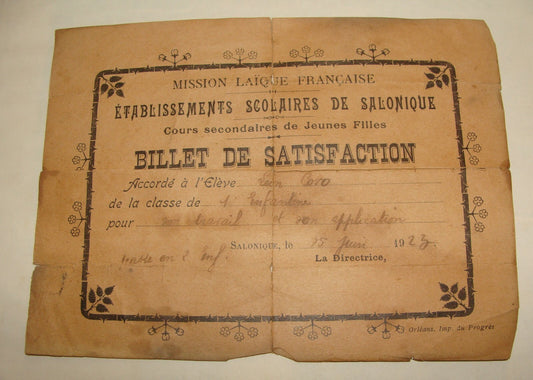 MISSION LAÏQUE FRANÇAISE
ÉTABLISSEMENTS SCOLAIRES DE SALONIQUE
Cours secondaires de Jeunes Filles
BILLET DE SATISFACTION
Accordé à l'Elève Léon
de la classe de 1e Enfantine
pour son travail et son application
SALONIQUE, le 15 Juin 1923
en 2 Enf.
La Directrice,
Orléans, Imp. du Progrès